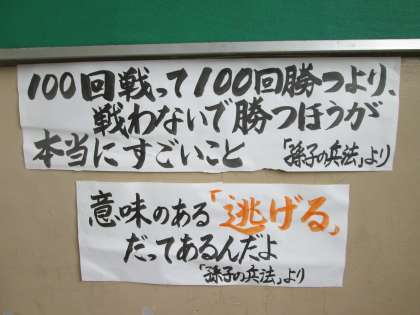 100回戦って100回勝つより、
戦わないで勝つほうが
本当にすごいこと 「孫子の兵法」より
意味のある「逃げる」
だってあるんだよ
「孫子の兵法」より